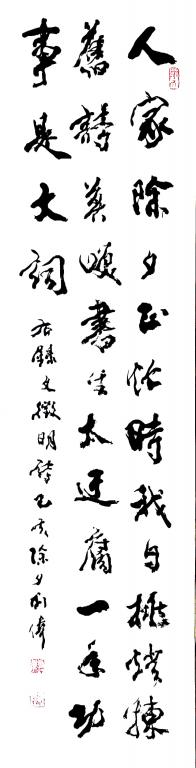 人家除夕正忙時我自挑燈揀
舊詩莫咲書生太迂腐一年功
事是文詞 右錄文徵明詩乙亥除夕